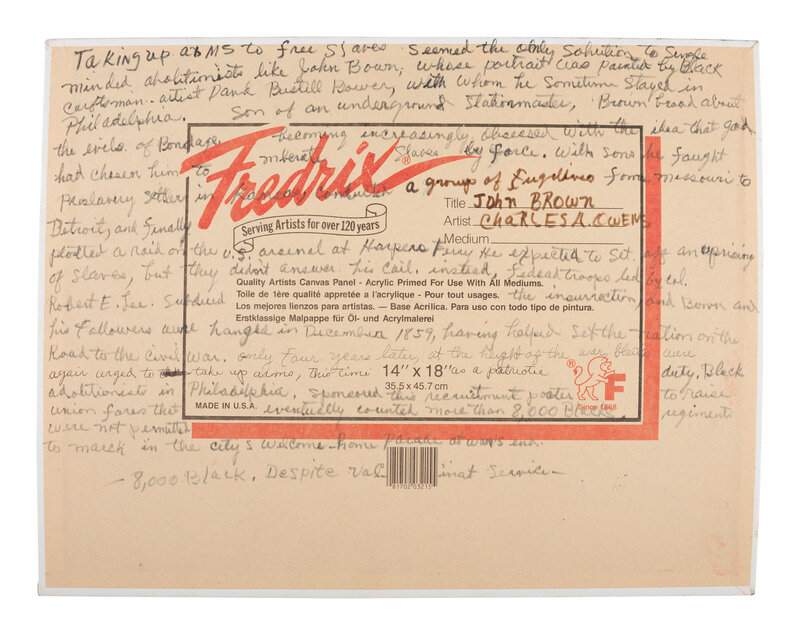 Taking up arms to free slaves seemed the only solution to single
minded abolitionists like John Bown, whose portrait was painted by Black
craftsman-artist David Bustill Bower, with whom he sometime stayed in
Philadelphia. Son of an underground stationmaster, Brown about
the evils of Bondage, becoming increasingly obsessed with the idea that god
had chosen him to liberate slaves by force. With sons he fought
Proslavery settlers in Kansas, conducted a group of fugitives from Missouri to
Detroit, and finally
plotted a raid on the U.S. arsenal at Harpers Ferry He expected to set off an uprising
of slaves, but they didn't answer his call. instead, Federal troops led by col.
Robert E. Lee. Subdued the insurrection, and Bown and
his Followers were hanged in December 1859, having helped set the nation on the
Road to the Civil War. only four years later, at the height of the war, blacks were
again urged to take up arms, this time as a patriotic duty. Black
abolitionists in Philadelphia, sponsored this recruitment poster to raise
union forces that eventually counted more than 8,000 Blacks. regiments
were not permitted
to march in the city's welcome-home parade at war's end.
- 8,000 Black. Despite Service-
Fredrix®
Serving Artists for over 120 years
Title JOHN BROWN
Artist CHARLES A. OWENS
Medium
Quality Artists Canvas Panel - Acrylic Primed For Use With All Mediums.
Toile de 1ère qualité appretée a l'acrylique - Pour tout usages.
Los mejores lienzos para artistas. — Base Acrílica. Para uso con todo tipo de pintura.
Erstklassige Malpappe für Öl- und Acrylmalerei
14" x 18"
35.5 x 45.7 cm
MADE IN U.S.A.
® F
Since 1868
0 81702 03215 5